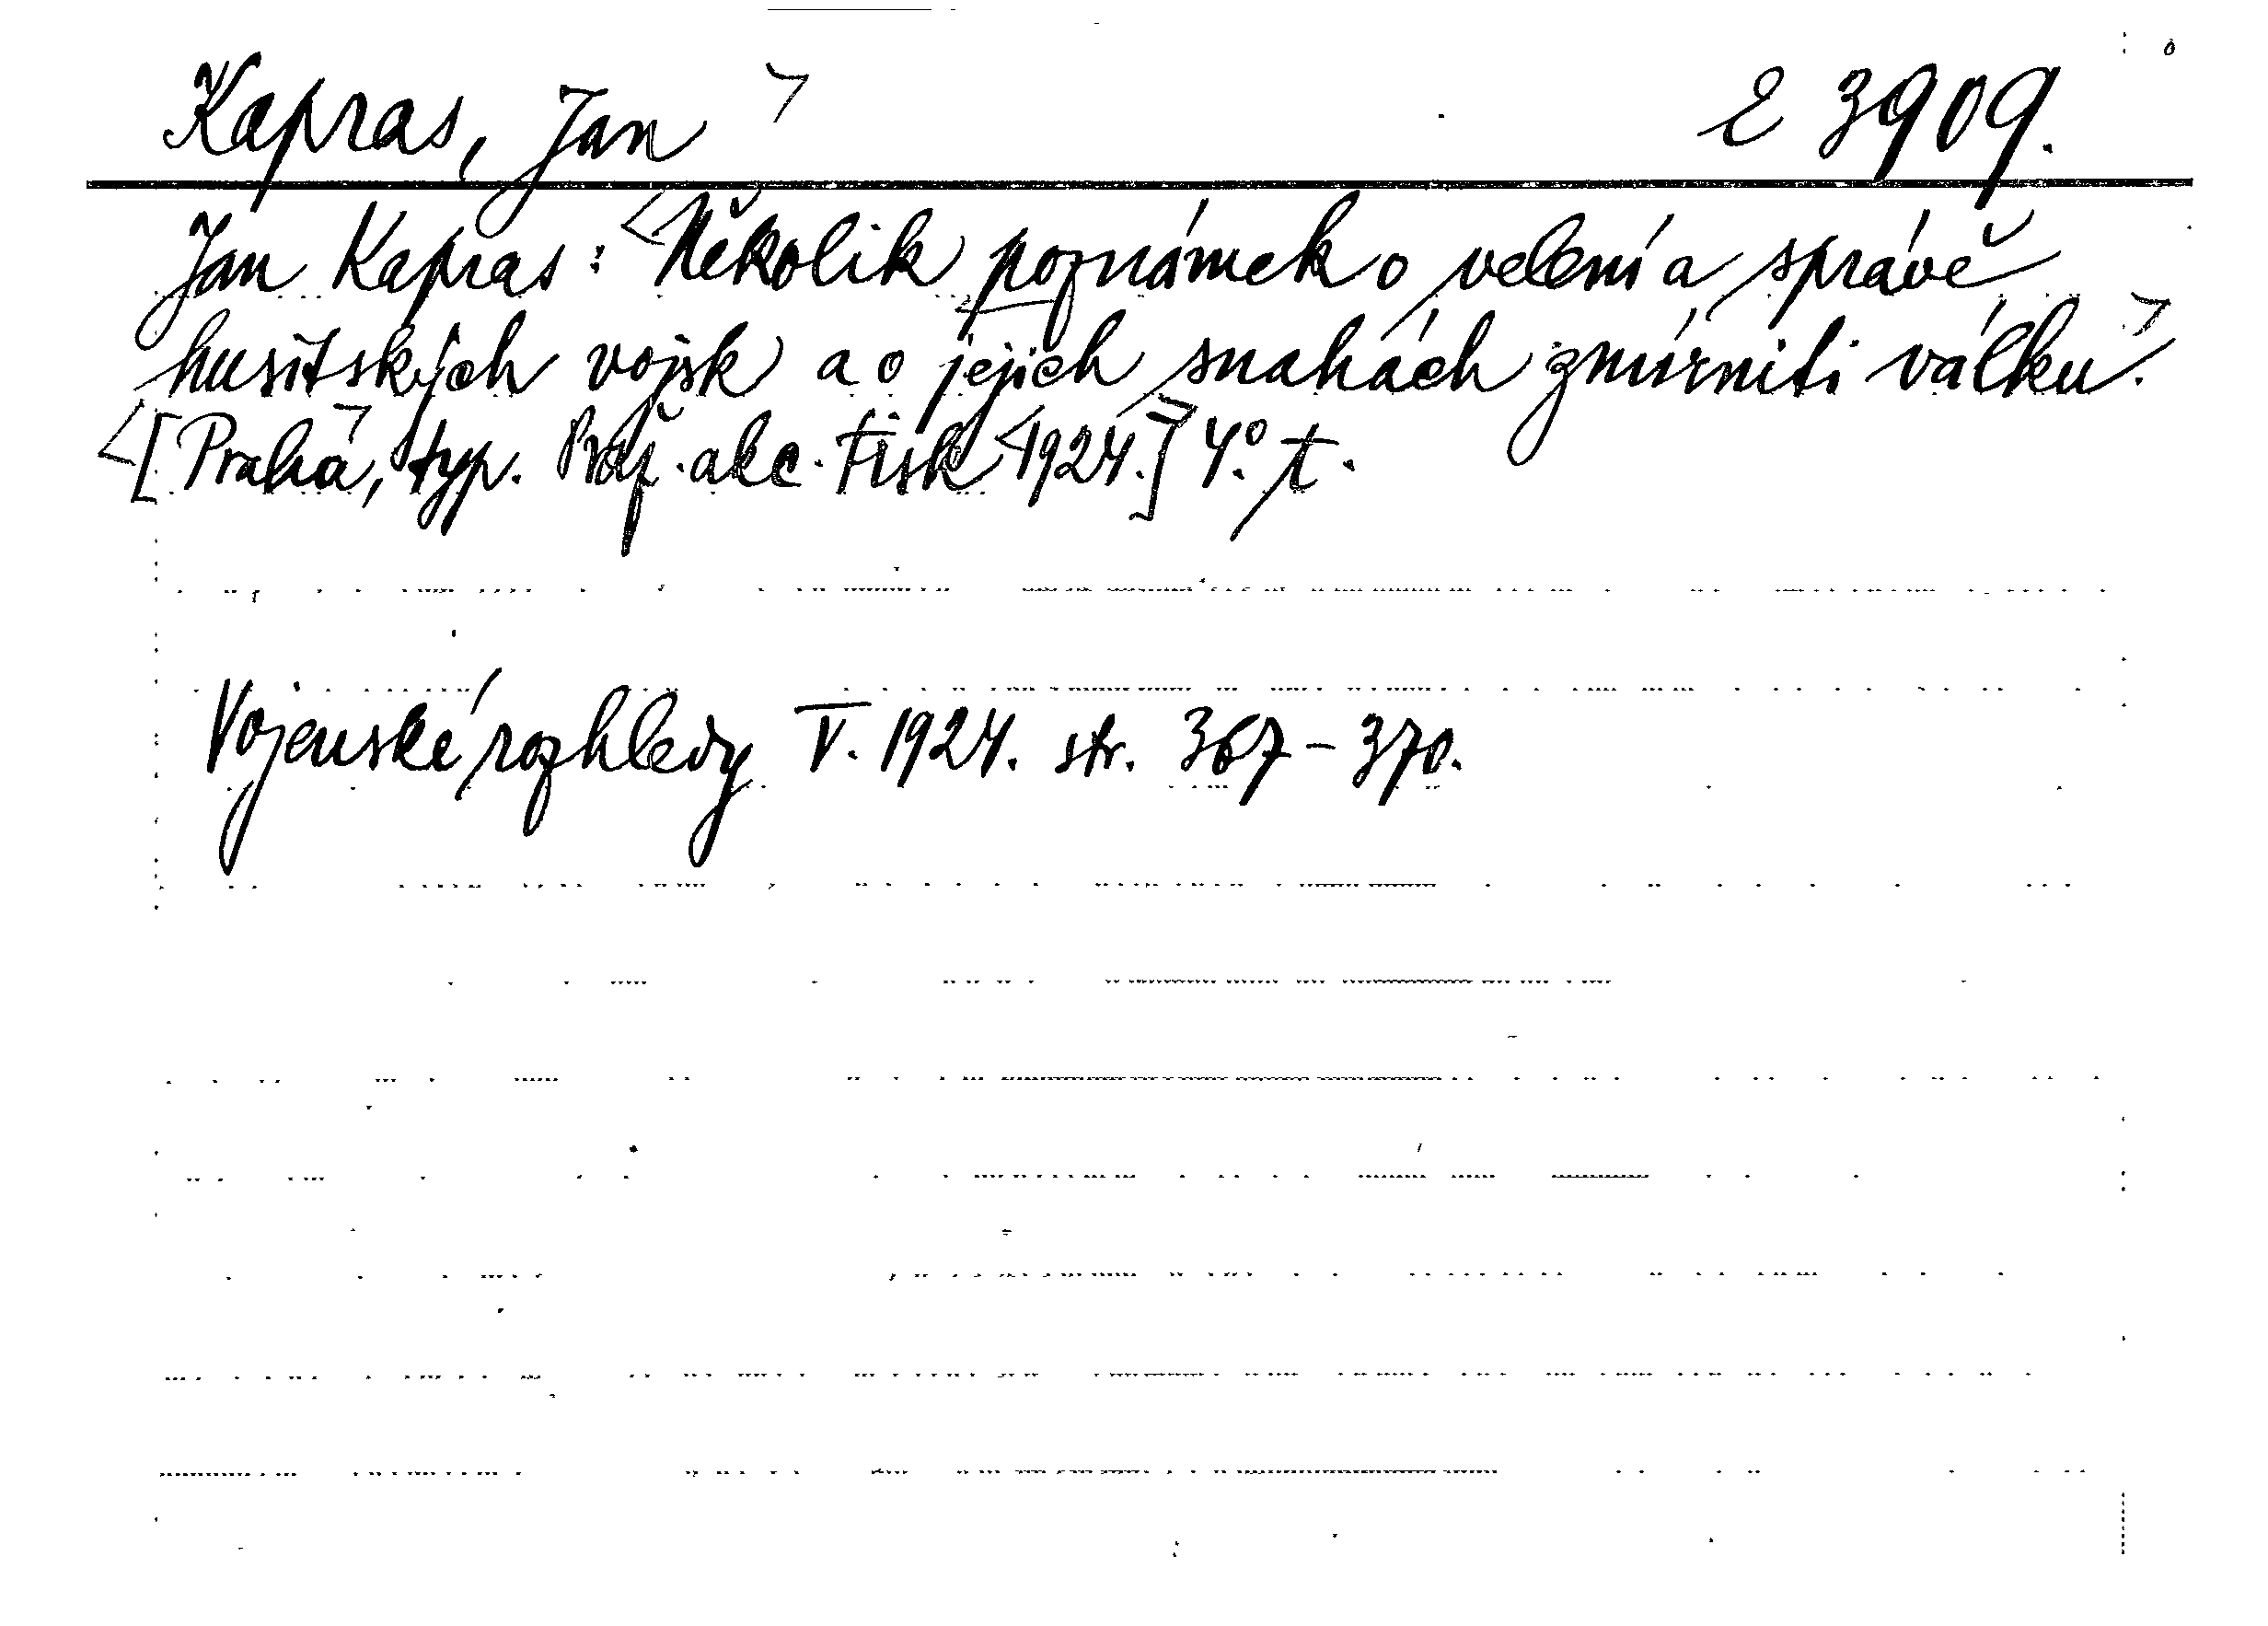 Kapras, Jan
E 3909.
Jan Kapras: Několik poznámek o velení a správě
husitských vojsk a o jejich snahách zmírniti válku.
[Praha, typ. Praž. akc. tisk 1924.] 4°. t.
Vojenské rozhledy V. 1924. str. 367-370.